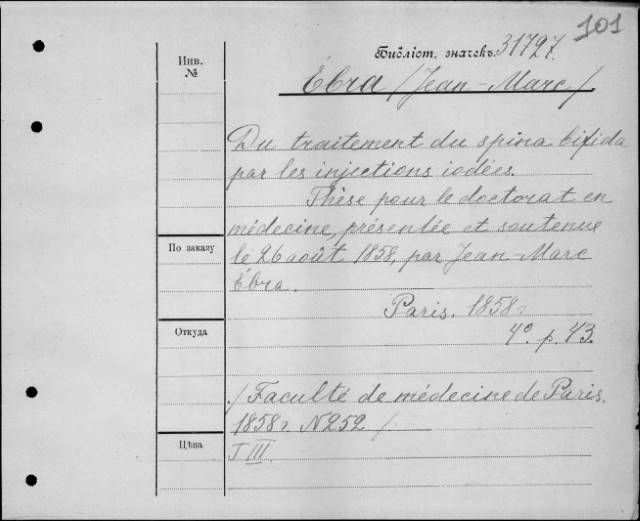 101
Библіот. значекъ 31797.
Инв.
№
Ébra /Jean-Marc/.
Du traitement du spina bifida
par les injections iodées.
Thèse pour le doctorat en
médecine, présentée et soutenue
По заказу
le 26 août 1858, par Jean-Marc
Ébra.
Paris. 1858 г.
Откуда
4º. p. 43.
/Faculté de médecine de Paris.
1858 г. N 252/
Цѣна
T III